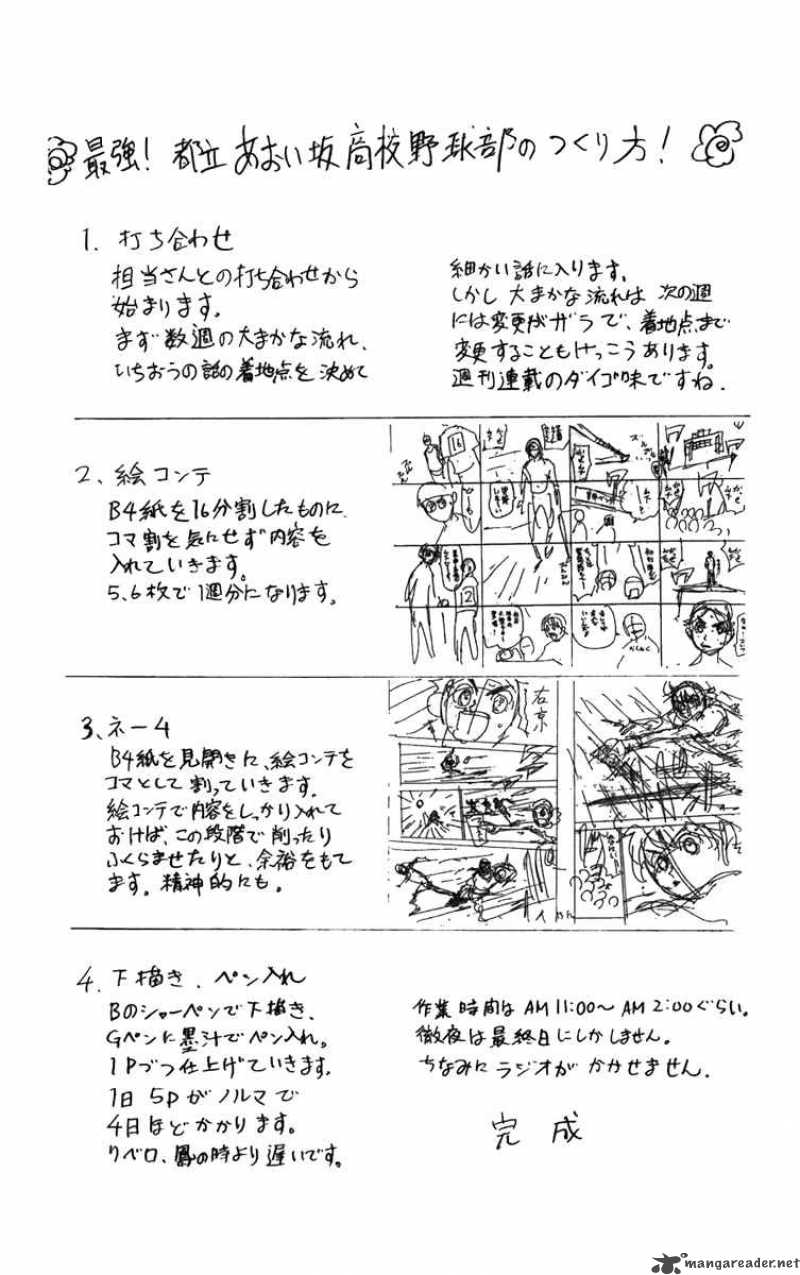 最強! 都立あおい坂高校野球部のつくり方!
1. 打ち合わせ
担当さんとの打ち合わせから
始まります。
まず数週の大まかな流れ、
いちおうの話の着地点を決めて
細かい話に入ります。
しかし 大まかな流れは 次の週
には変更がザラで、着地点まで
変更することもけっこうあります。
週刊連載のダイゴ味ですね.
2、絵コンテ
B4紙を16分割したものに、
コマ割を気にせず内容を
入れていきます。
5、6枚で1週分になります。
3、ネーム
B4紙を見開きに、絵コンテを
コマとして割っていきます。
絵コンテで内容をしっかり入れて
おけば、この段階で削ったり
ふくらませたりと、余裕をもて
ます。精神的にも。
右京
4. 下描き、ペン入れ
Bのシャーペンで下描き、
Gペンに墨汁でペン入れ。
1Pづつ仕上げていきます。
1日 5Pがノルマで
4日ほどかかります。
リベロ、鳳の時より遅いです。
作業時間は AM 11:00〜AM 2:00ぐらい。
徹夜は最終日にしかしません。
ちなみに ラジオが かかせません.
完 成
mangareader.net